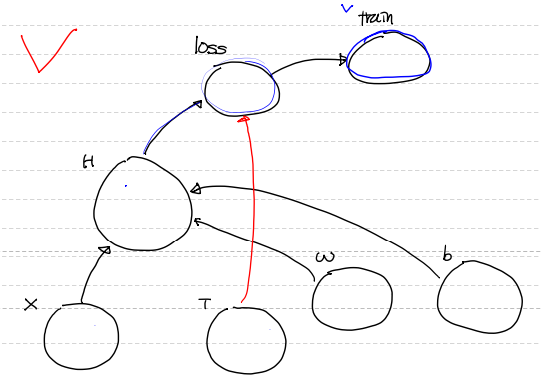 train
loss
H
W
b
X
T